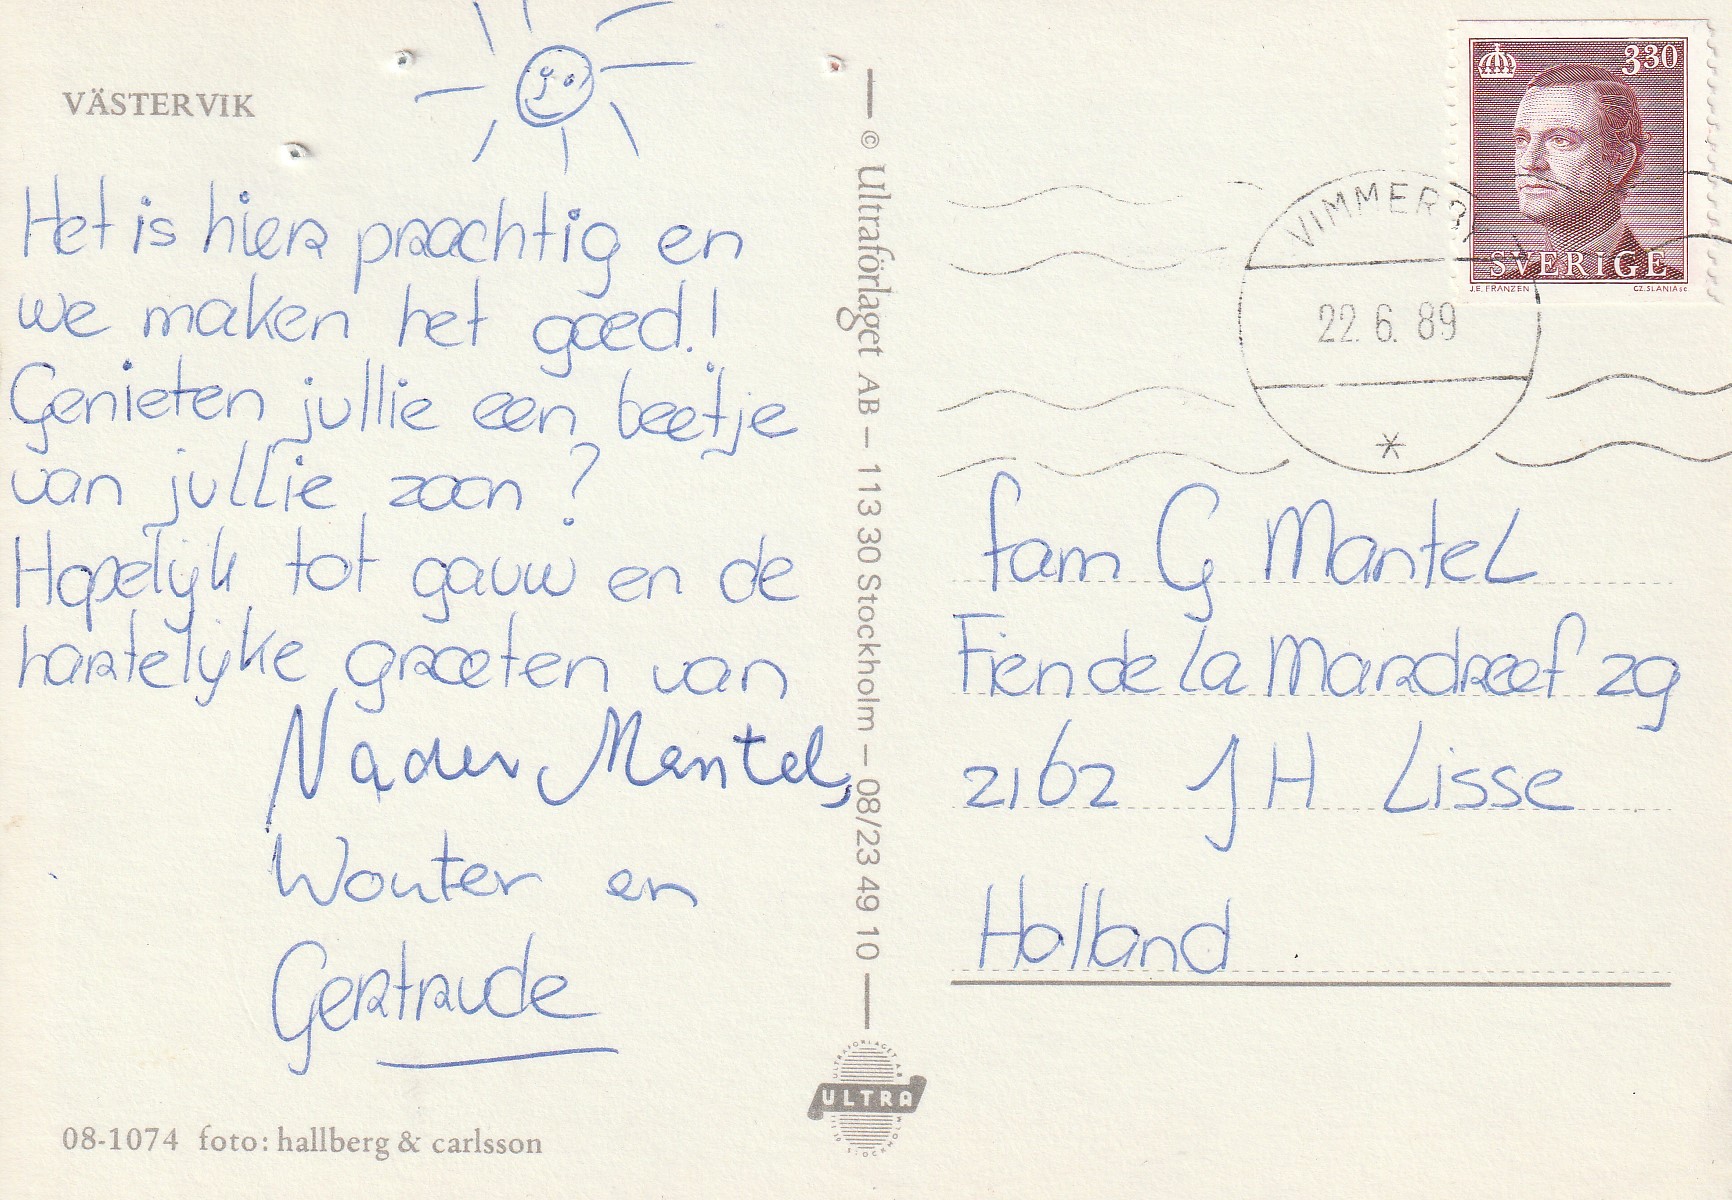 VÄSTERVIK
Het is hier prachtig en
we maken het goed!
Genieten jullie een beetje
van jullie zoon?
Hopelijk tot gauw en de
hartelijke groeten van
Nader Mantel,
Wouter en
Gertrude
08-1074 foto: hallberg & carlsson
© Ultraförlaget AB – 113 30 Stockholm – 08/23 49 10
ULTRAFÖRLAGET AB
ULTRA
STOCKHOLM
330
SVERIGE
J.E. FRANZÉN CZ. SLANIA sc
VIMMERBY
22.6.89
fam G Mantel
Fien de la Mardreef 29
2162 JH Lisse
Holland